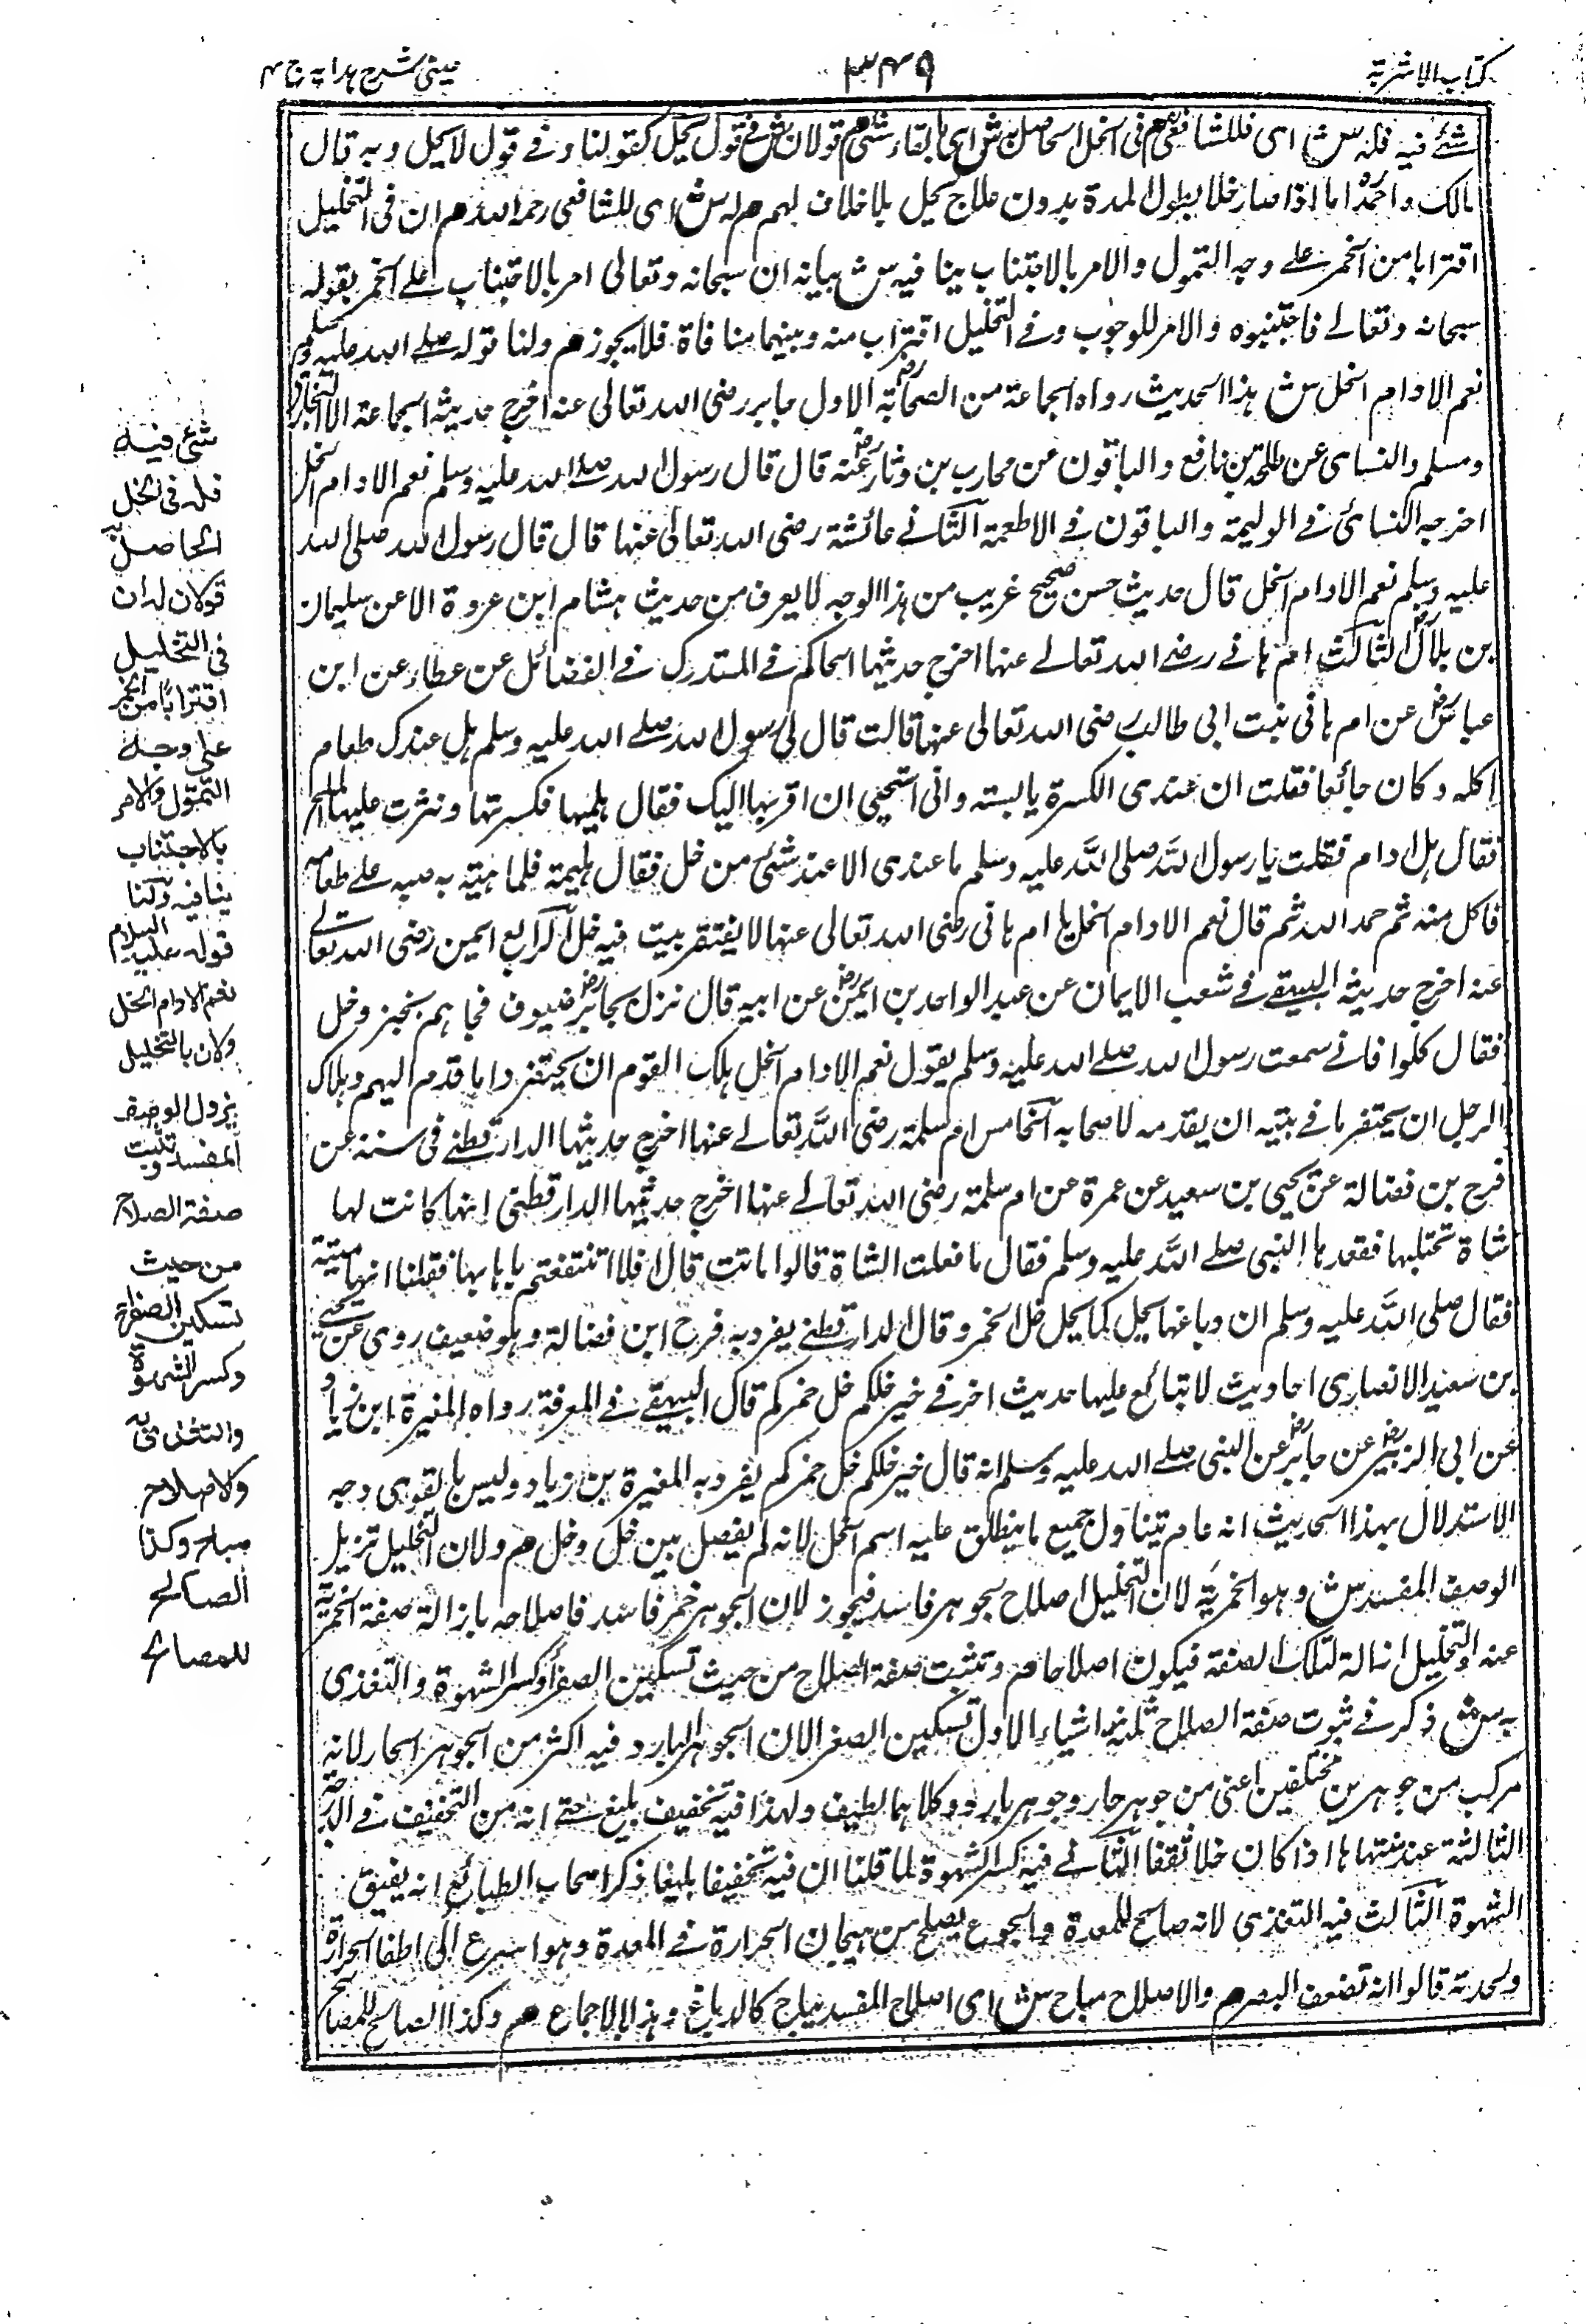 كتاب الاشربة
٣٤٩
عينى شرح هدايه ج ٤
شئ فيه فله ش اى فللشافعى م فى الخل الحاصل ش اى بالقاء شئ م قولان ش فى قول يحل كقولنا وفى قول لا يحل وبه قال
مالك واحمد اما اذا صار خلا بطول المدة بدون علاج يحل بلا خلاف لهم م له ش اى للشافعى رحمه الله م ان فى التخليل
اقترابا من الخمر على وجه التمول والامر بالاجتناب ينافيه ش بيانه ان سبحانه وتعالى امر بالاجتناب على الخمر بقوله
سبحانه وتعالى فاجتنبوه والامر للوجوب وفى التخليل اقتراب منه وبينهما منافاة فلا يجوز م ولنا قوله صلى الله عليه وسلم
نعم الادام الخل ش هذا الحديث رواه الجماعة من الصحابة الاول جابر رضى الله تعالى عنه اخرج حديثه الجماعة الا البخارى
ومسلم والنساى عن طلحة بن نافع والباقون عن محارب بن دثار عنه قال قال رسول الله صلى الله عليه وسلم نعم الادام الخل
اخرجه النسائى فى الوليمة والباقون فى الاطعمة الثانى عائشة رضى الله تعالى عنها قال قال رسول الله صلى الله
عليه وسلم نعم الادام الخل قال حديث حسن صحيح غريب من هذا الوجه لا يعرف من حديث هشام ابن عروة الا عن سليمان
بن بلال الثالث ام هانى رضى الله تعالى عنها اخرج حديثها الحاكم فى المستدرك فى الفضائل عن عطاء عن ابن
عباس عن ام هانى بنت ابى طالب رضى الله تعالى عنها قالت قال لى رسول الله صلى الله عليه وسلم هل عندك طعام
اكله وكان جائعا فقلت ان عندى الكسرة يابسته وانى استحيى ان اقربها اليك فقال هلميها فكسرتها ونثرت عليها الملح
فقال هل ادام فقلت يا رسول الله صلى الله عليه وسلم ما عندى الا عند شئ من خل فقال هليمة فلما هيته به صبه على طعامه
فاكل منه ثم حمد الله ثم قال نعم الادام الخل يا ام هانى رضى الله تعالى عنها لا يفتقر بيت فيه خل الرابع ايمن رضى الله تعالى
عنه اخرج حديثه البيهقى فى شعب الايمان عن عبد الواحد بن ايمن عن ابيه قال نزل بجابر ضيوف فجاهم بخبز وخل
فقال كلوا فانى سمعت رسول الله صلى الله عليه وسلم يقول نعم الادام الخل هلاك القوم ان يحتقروا ما قدم اليهم وهلاك
الرجل ان يحتقر ما فى بيته ان يقدمه لاصحابه الخامس ام سلمة رضى الله تعالى عنها اخرج حديثها الدارقطنى فى سننه عن
فرج بن فضالة عن يحيى بن سعيد عن عمرة عن ام سلمة رضى الله تعالى عنها اخرج حديثها الدارقطنى انها كانت لها
شاة تحتلبها ففقدها النبى صلى الله عليه وسلم فقال ما فعلت الشاة قالوا ماتت قال افلا انتفعتم باهابها فقلنا انها ميتة
فقال صلى الله عليه وسلم ان دباغها يحل كما يحل خل الخمر وقال الدارقطنى يفرد به فرج ابن فضالة وهو ضعيف روى عن يحيى
بن سعيد الانصارى احاديث لا تتابع عليها حديث اخر فى خير خلكم خل خمركم قال البيهقى فى المعرفة رواه المغيرة ابن زياد
عن ابى الزبير عن جابر عن النبى صلى الله عليه وسلم انه قال خير خلكم خل خمركم يفرد به المغيرة بن زياد وليس بالقوى وجه
الاستدلال بهذا الحديث انه عام يتناول جميع ما ينطلق عليه اسم الخل لانه لم يفصل بين خل وخل م ولان التخليل تزيل
الوصف المفسد ش وهو الخمرية لان التخليل اصلاح بجوهر فاسد فيجوز لان الجوهر خمر فاسد فاصلاحه بازالة صفة الخمرية
عنه والتخليل ازالة لتلك الصفة فيكون اصلاحا م وتثبت صفة الصلاح من حيث تسكين الصفراء وكسر الشهوة والتغذى
به ش ذكر فى ثبوت صفة الصلاح ثلثة اشياء الاول تسكين الصفرا لان الجوهر البارد فيه اكثر من الجوهر الحار لانه
مركب من جوهرين مختلفين اعنى من جوهر حار وجوهر بارد وكلاهما لطيف ولهذا فيه تخفيف بليغ حتى انه من التخفيف فى الدرجة
الثالثة عند منتهاها اذا كان خلا ثقفا الثانى فيه كسر الشهوة لما قلنا ان فيه تخفيفا بليغا ذكر اصحاب الطبائع انه يفيق
الشهوة الثالث فيه التغذى لانه صالح للمعدة والجوع يصلح من هيجان الحرارة فى المعدة وهو اسرع الى اطفا الحرارة
ولحدته قالوا انه تضعف البصر م والاصلاح مباح ش اى اصلاح المفسد يباح كالدباغ وهذا بالاجماع م وكذا الصالح للمصالح
شئ فيه
فله فى الخل
الحاصل به
قولان له ان
فى التخليل
اقترابا من الخمر
على وجه
التمول والامر
بالاجتناب
ينافيه ولنا
قوله عليه السلام
نعم الادام الخل
ولان بالتخليل
يزول الوصف
المفسد وتثبت
صفة الصلاح
من حيث
تسكين الصفراء
وكسر الشهوة
والتغذى به
والاصلاح
مباح وكذا
الصالح
للمصالح